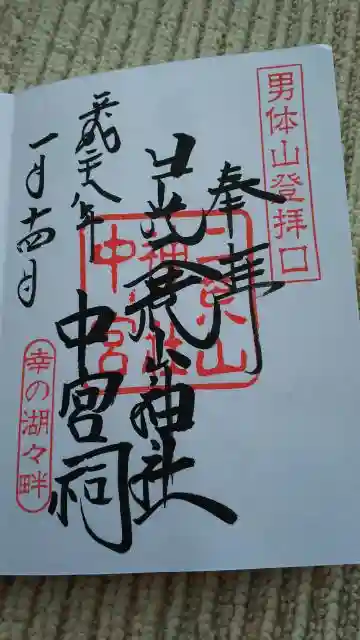 男体山登拝口
奉拝
日光二荒山神社
中宮祠
二荒山
神社
中宮
平成二十八年
一月十四日
幸の湖々畔